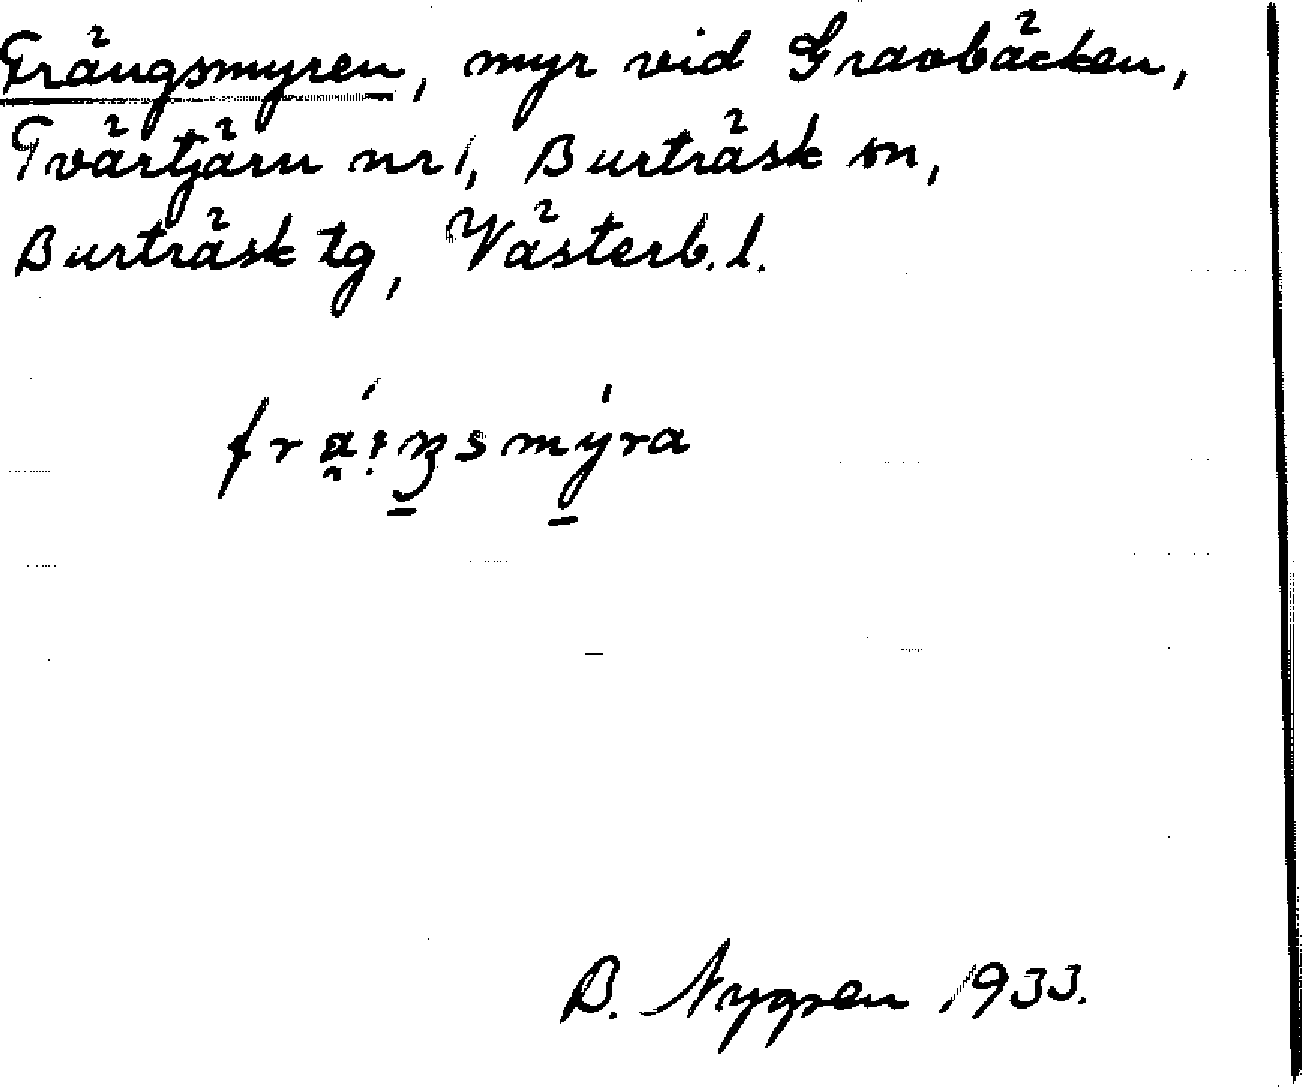 Trängsmyren, myr vid Gravbäcken,
Tvärtjärn nr 1, Burträsk sn,
Burträsk tg, Västerb. l.
B. Nygren 1933.